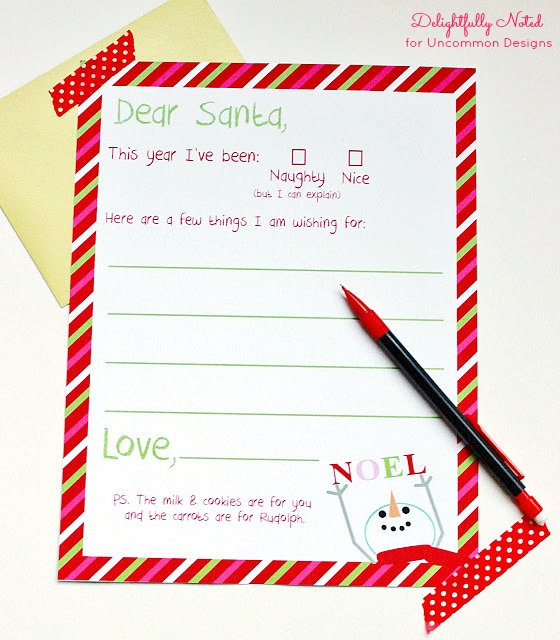 Delightfully Noted
for Uncommon Designs
Dear Santa,
This year I've been:
Naughty Nice
(but I can explain)
Here are a few things I am wishing for:
Love,
NOEL
PS. The milk & cookies are for you
and the carrots are for Rudolph.